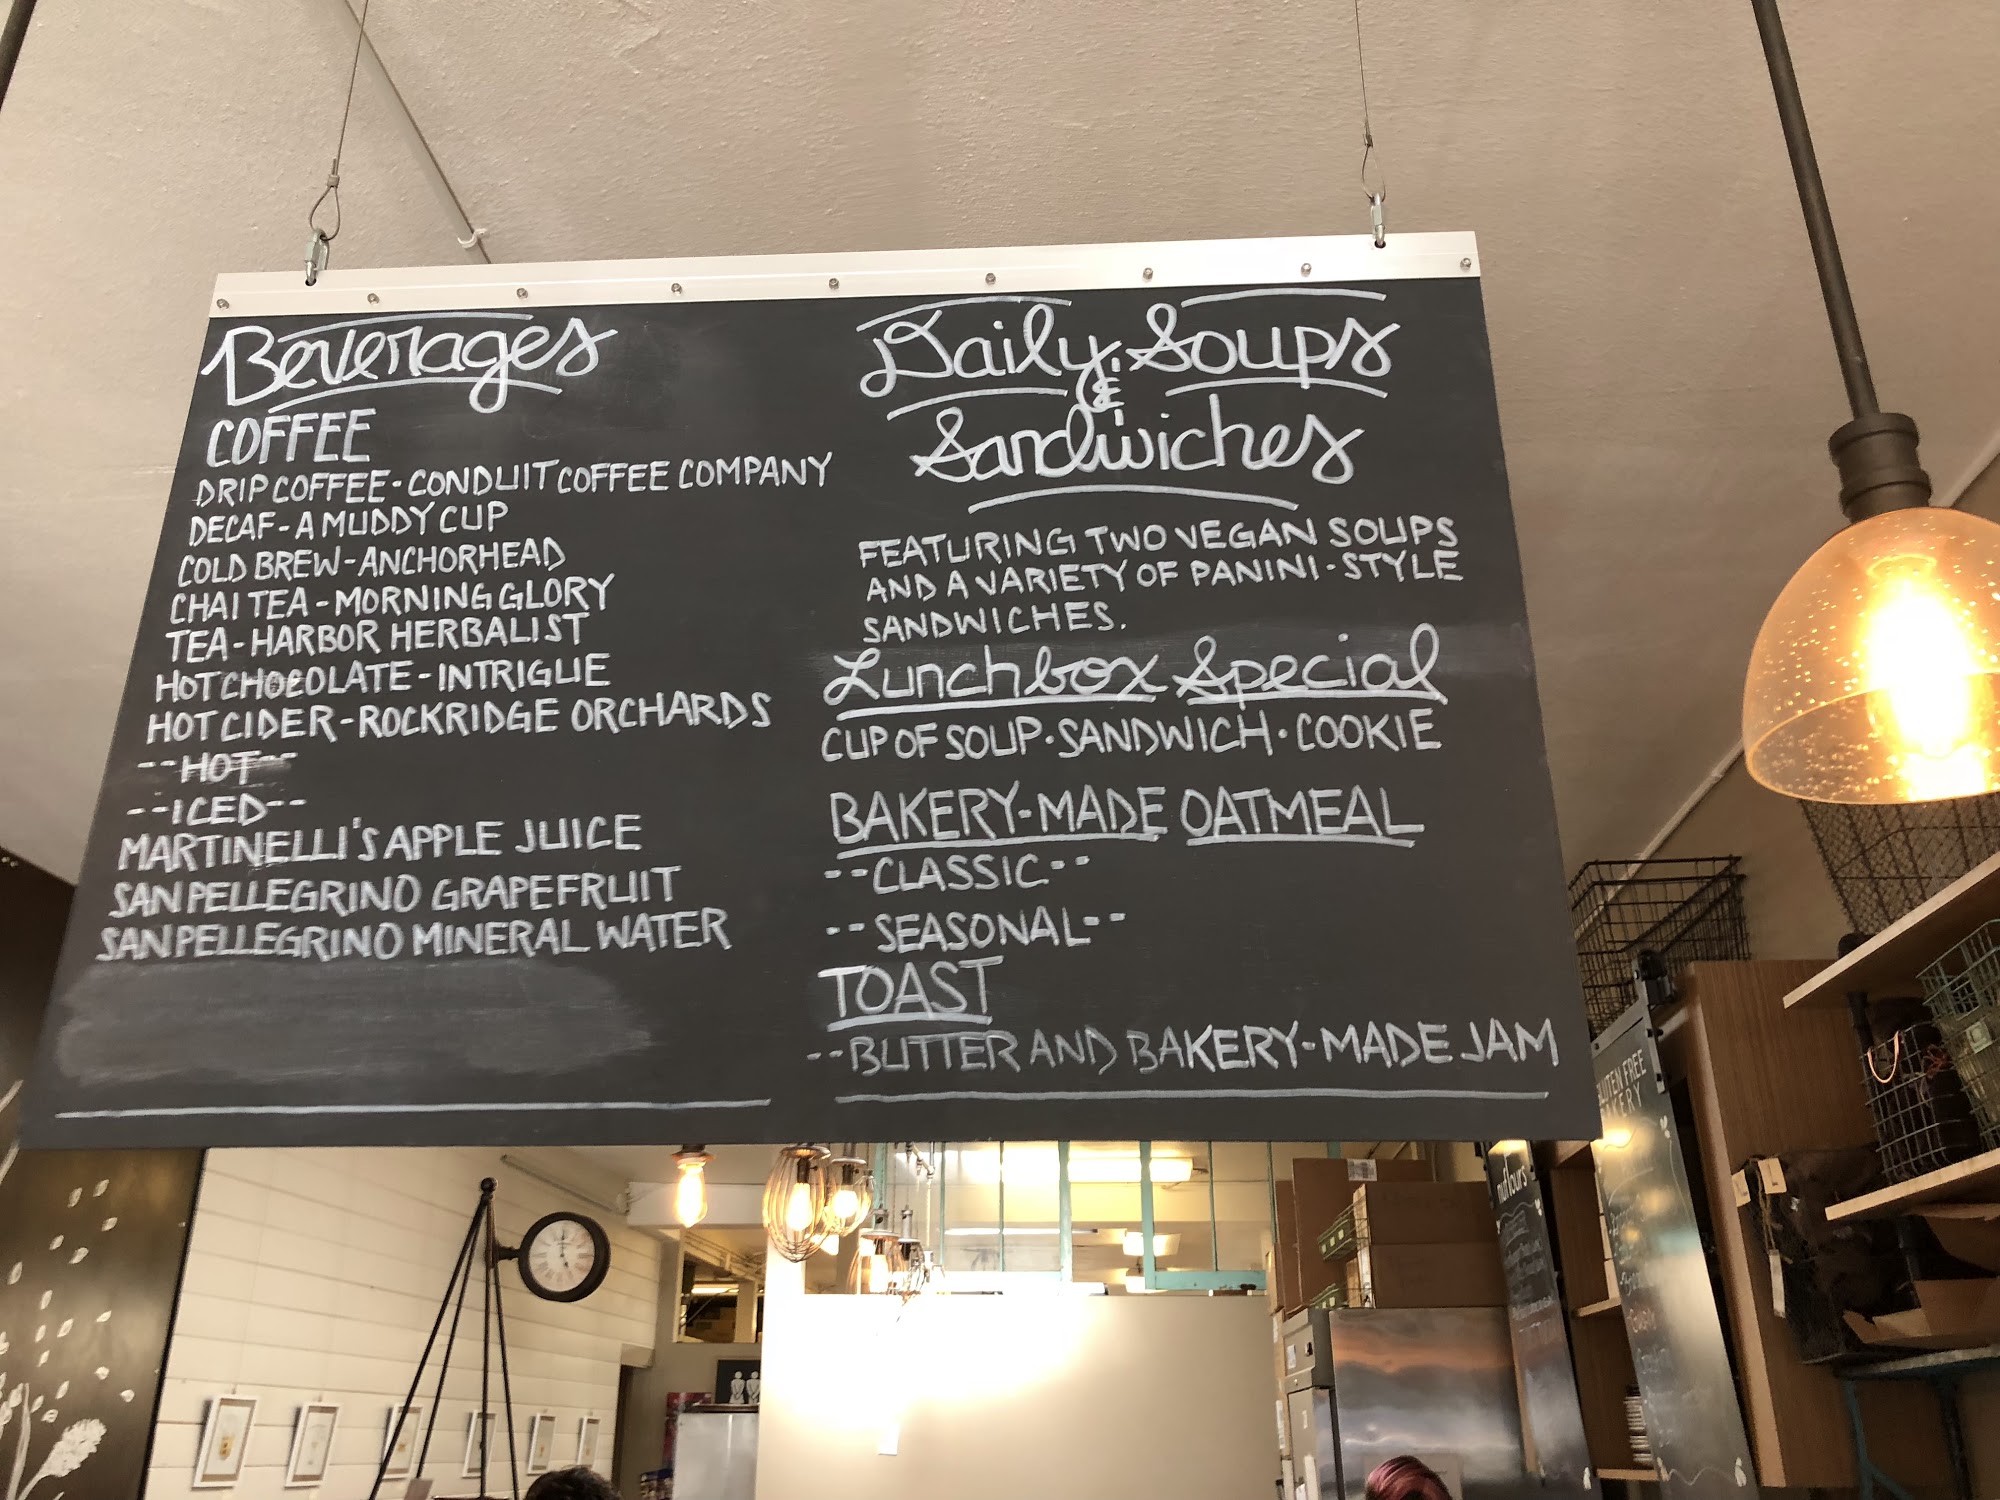 Beverages
COFFEE
DRIP COFFEE - CONDUIT COFFEE COMPANY
DECAF - A MUDDY CUP
COLD BREW - ANCHORHEAD
CHAI TEA - MORNING GLORY
TEA - HARBOR HERBALIST
HOT CHOCOLATE - INTRIGUE
HOT CIDER - ROCKRIDGE ORCHARDS
--HOT--
--ICED--
MARTINELLI'S APPLE JUICE
SAN PELLEGRINO GRAPEFRUIT
SAN PELLEGRINO MINERAL WATER
Daily Soups
&
Sandwiches
FEATURING TWO VEGAN SOUPS
AND A VARIETY OF PANINI-STYLE
SANDWICHES.
Lunchbox Special
CUP OF SOUP • SANDWICH • COOKIE
BAKERY-MADE OATMEAL
--CLASSIC--
--SEASONAL--
TOAST
--BUTTER AND BAKERY-MADE JAM
nuflours
FREE